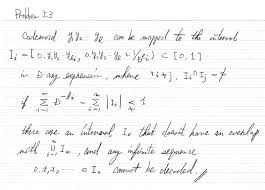 Problem 1.3
Codeword y₁y₂…yₗ can be mapped to the interval
Iᵢ = [0.y₁y₂…yₗᵢ, 0.y₁y₂…yₗ + 1/Dˡⁱ) ⊂ [0,1]
in D-ary expansion, where ∀i≠j, Iᵢ∩Iⱼ = φ
if Σᵢ₌₁ᵐ D^{-lᵢ} = Σᵢ₌₁ᵐ |Iᵢ| < 1
there are an interval I₀ that doesn't have an overlap
with ⋃ᵢ₌₁ᵐ Iₘ, and any infinite sequence
0.x₁x₂… ∈ I₀ cannot be decoded.